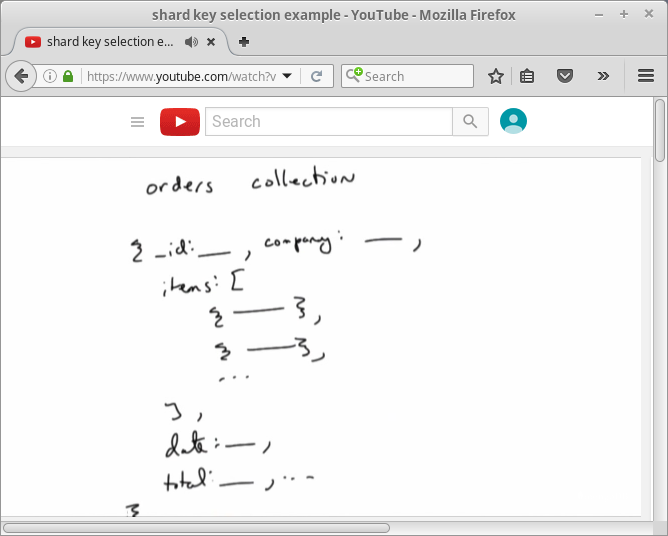 shard key selection example - YouTube - Mozilla Firefox
shard key selection e...
https://www.youtube.com/watch?v
Search
Search
orders collection
{ _id: __ , company: __ ,
items: [
{ __ },
{ __ },
...
] ,
date: __ ,
total: __ , ...
}